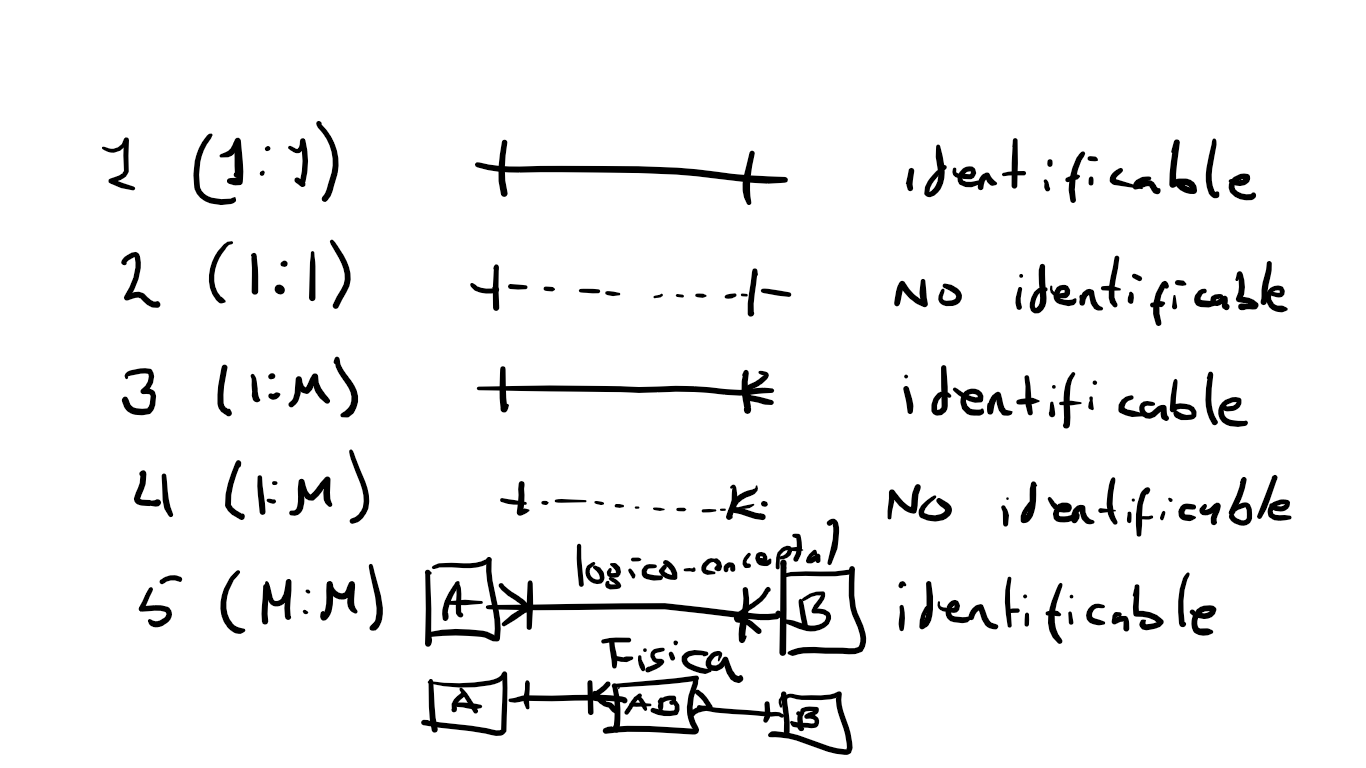 1 (1:1) identificable
2 (1:1) No identificable
3 (1:M) identificable
4 (1:M) No identificable
logico-conceptal
5 (M:M) A B identificable
Fisica
A AB B